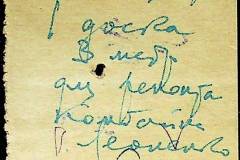 1 доска
В метр
для ремонта
комбайна
Г. Леоненко